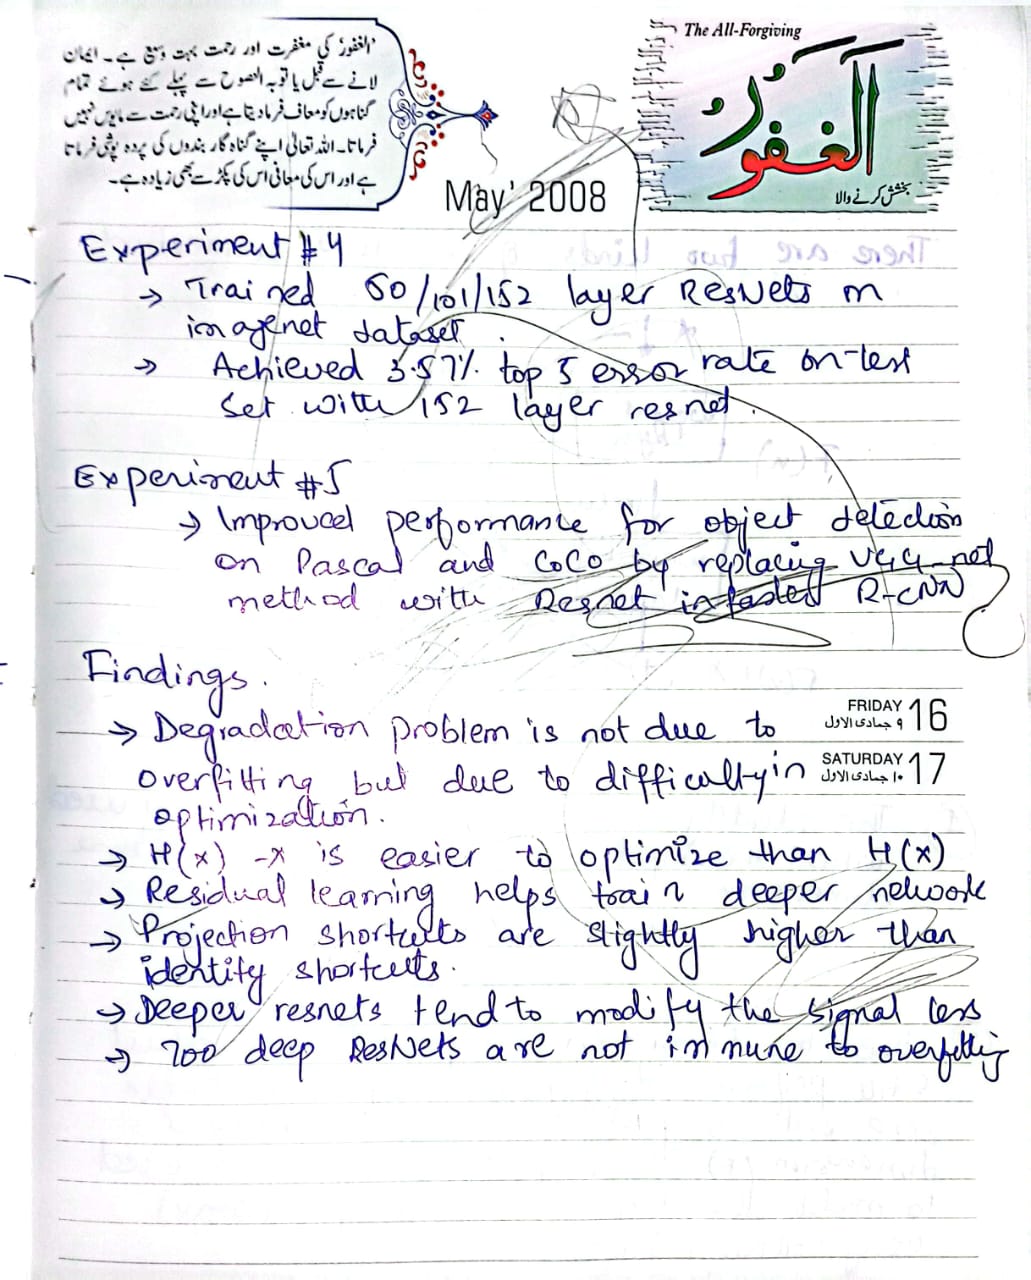 The All-Forgiving
الغفور
بخشش کرنے والا
'الغفور' کی مغفرت اور رحمت بہت وسیع ہے۔ ایمان
لانے سے قبل یا توبہ النصوح سے پہلے کئے ہوئے تمام
گناہوں کو معاف فرما دیتا ہے اور اپنی رحمت سے مایوس نہیں
فرماتا۔ اللہ تعالیٰ اپنے گناہ گار بندوں کی پردہ پوشی فرماتا
ہے اور اس کی معافی اس کی پکڑ سے بھی زیادہ ہے۔
May' 2008
Experiment # 4
→ Trained 50/101/152 layer ResNets on
imagenet dataset.
→ Achieved 3.57% top 5 error rate on test
set with 152 layer resnet.
Experiment #5
→ Improved performance for object detection
on Pascal and COCO by replacing VGG net
method with Resnet in faster R-CNN
Findings.
→ Degradation problem is not due to
overfitting but due to difficulty in
optimization.
FRIDAY 16
۹ جمادی الاول
SATURDAY 17
۱۰ جمادی الاول
→ H(x) -x is easier to optimize than H(x)
→ Residual learning helps train deeper network
→ Projection shortcuts are slightly higher than
identity shortcuts.
→ Deeper resnets tend to modify the signal less
→ 200 deep ResNets are not immune to overfitting